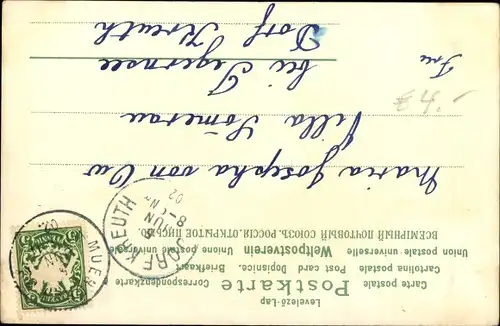 Levelező-Lap
Postkarte
Carte postale Correspondenzkarte
Cartolina postale Post card Dopisnice. Briefkaart
Union postale universelle Weltpostverein Unione postale universale
ВСЕМІРНЫЙ ПОЧТОВЫЙ СОЮЗЪ. РОССІЯ. ОТКРЫТОЕ ПИСЬМО.
BAYERN
MUEN
02
DORF KREUTH
8 JUN
8-
02
Frn
Maria Josepha von Ow
Villa Sömerau
bei Tegernsee
Dorf Kreuth